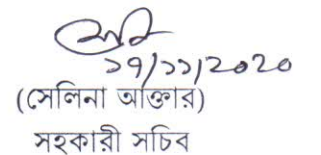 ১৭/১১/২০২০
(সেলিনা আক্তার)
সহকারী সচিব